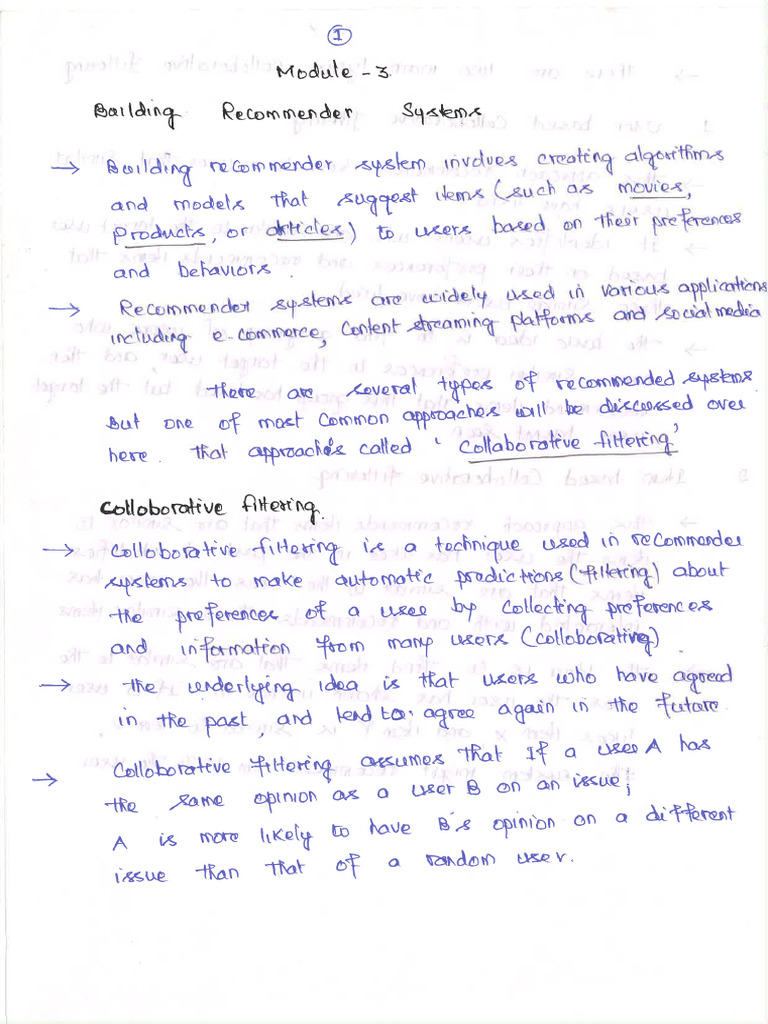 1
Module - 3.
Building Recommender Systems
→ Building recommender system involves creating algorithms
and models that suggest items (such as movies,
products, or articles) to users based on their preferences
and behaviors.
→ Recommender systems are widely used in various applications
including e-commerce, Content streaming platforms and social media
there are several types of recommended systems
But one of most common approaches will be discussed over
here. that approach is called 'Collaborative filtering'
Collaborative filtering.
→ Collaborative filtering is a technique used in recommender
systems to make automatic predictions (filtering) about
the preferences of a user by collecting preferences
and information from many users (collaborative)
→ the underlying idea is that users who have agreed
in the past, and tend to agree again in the future.
→ Collaborative filtering assumes that If a user A has
the same opinion as a user B on an issue;
A is more likely to have B's opinion on a different
issue than that of a random user.